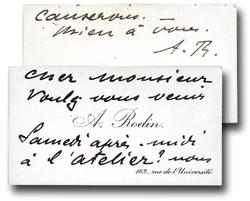 causerons. —
bien à vous.
A. R.
cher monsieur
Voulez vous venir
A. Rodin.
Samedi après-midi
à l'atelier? nous
182, rue de l'Université